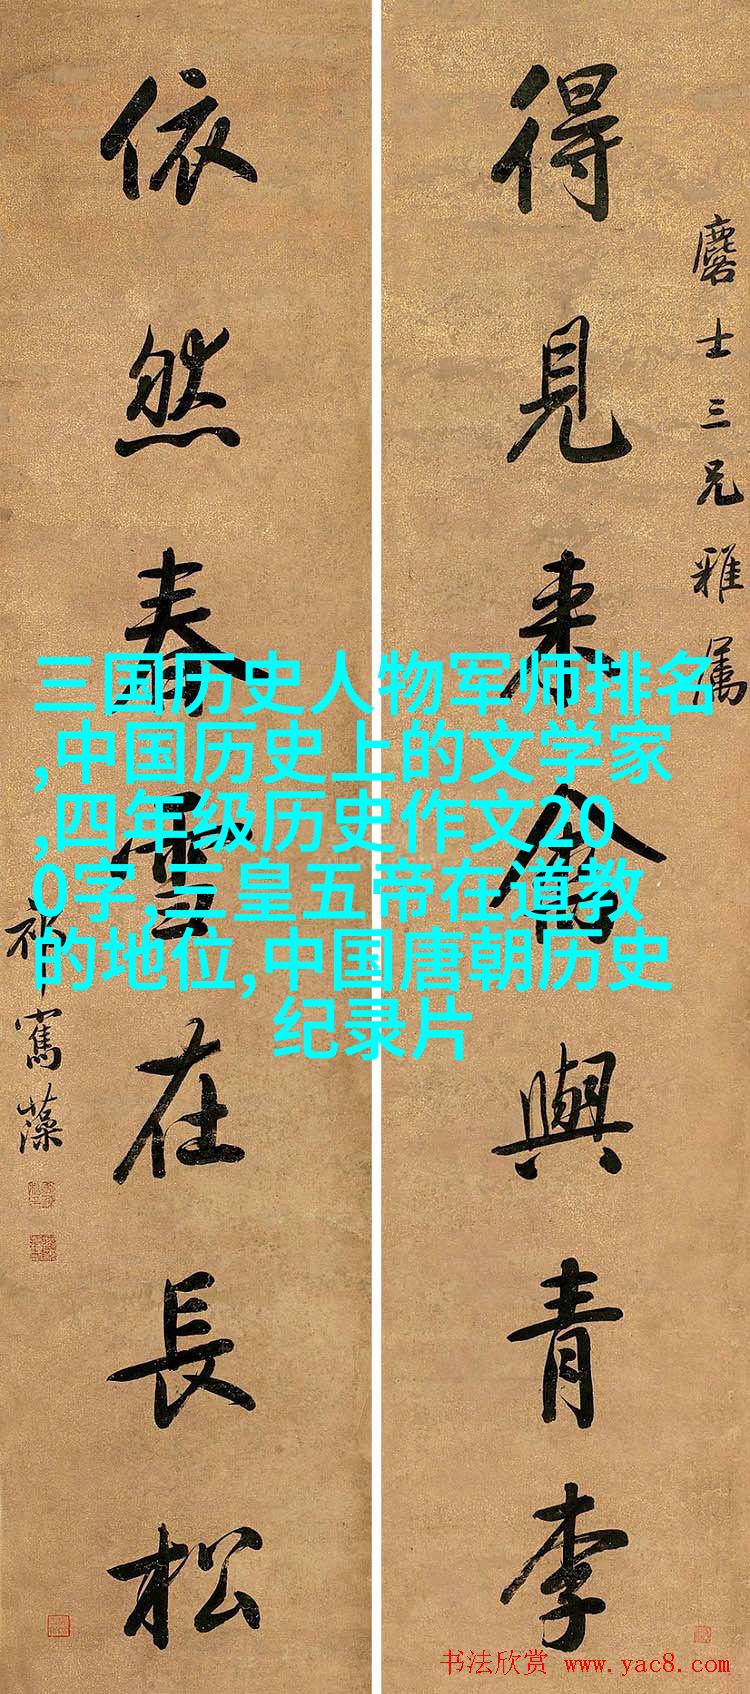 得見來禽與青李
麐士三兄雅属
依然春雪在長松
祁寯藻
三国历史人物军师排名
,中国历史上的文学家
,四年级历史作文20
0字,三皇五帝在道教
的地位,中国唐朝历史
纪录片
书法欣赏 www.yac8.com